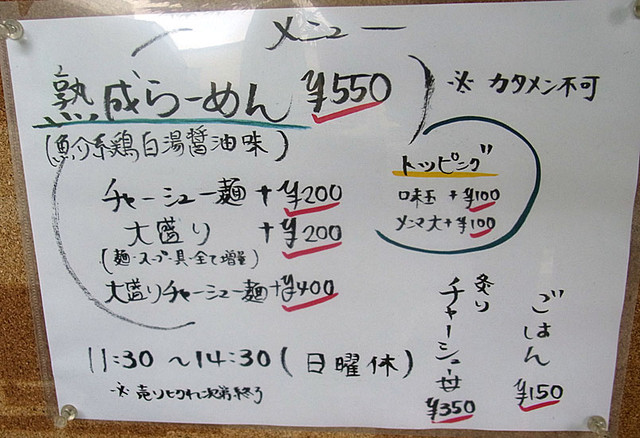 メニュー
熟成らーめん ¥550
※ カタメン不可
(魚介系鶏白湯醤油味)
チャーシュー麺 +¥200
大盛り +¥200
(麺・スープ・具・全て増量)
大盛りチャーシュー麺+¥400
トッピング
味玉 +¥100
メンマ大+¥100
炙りチャーシュー丼
¥350
ごはん
¥150
11:30 ～14:30 (日曜休)
※ 売り切れ次第終了